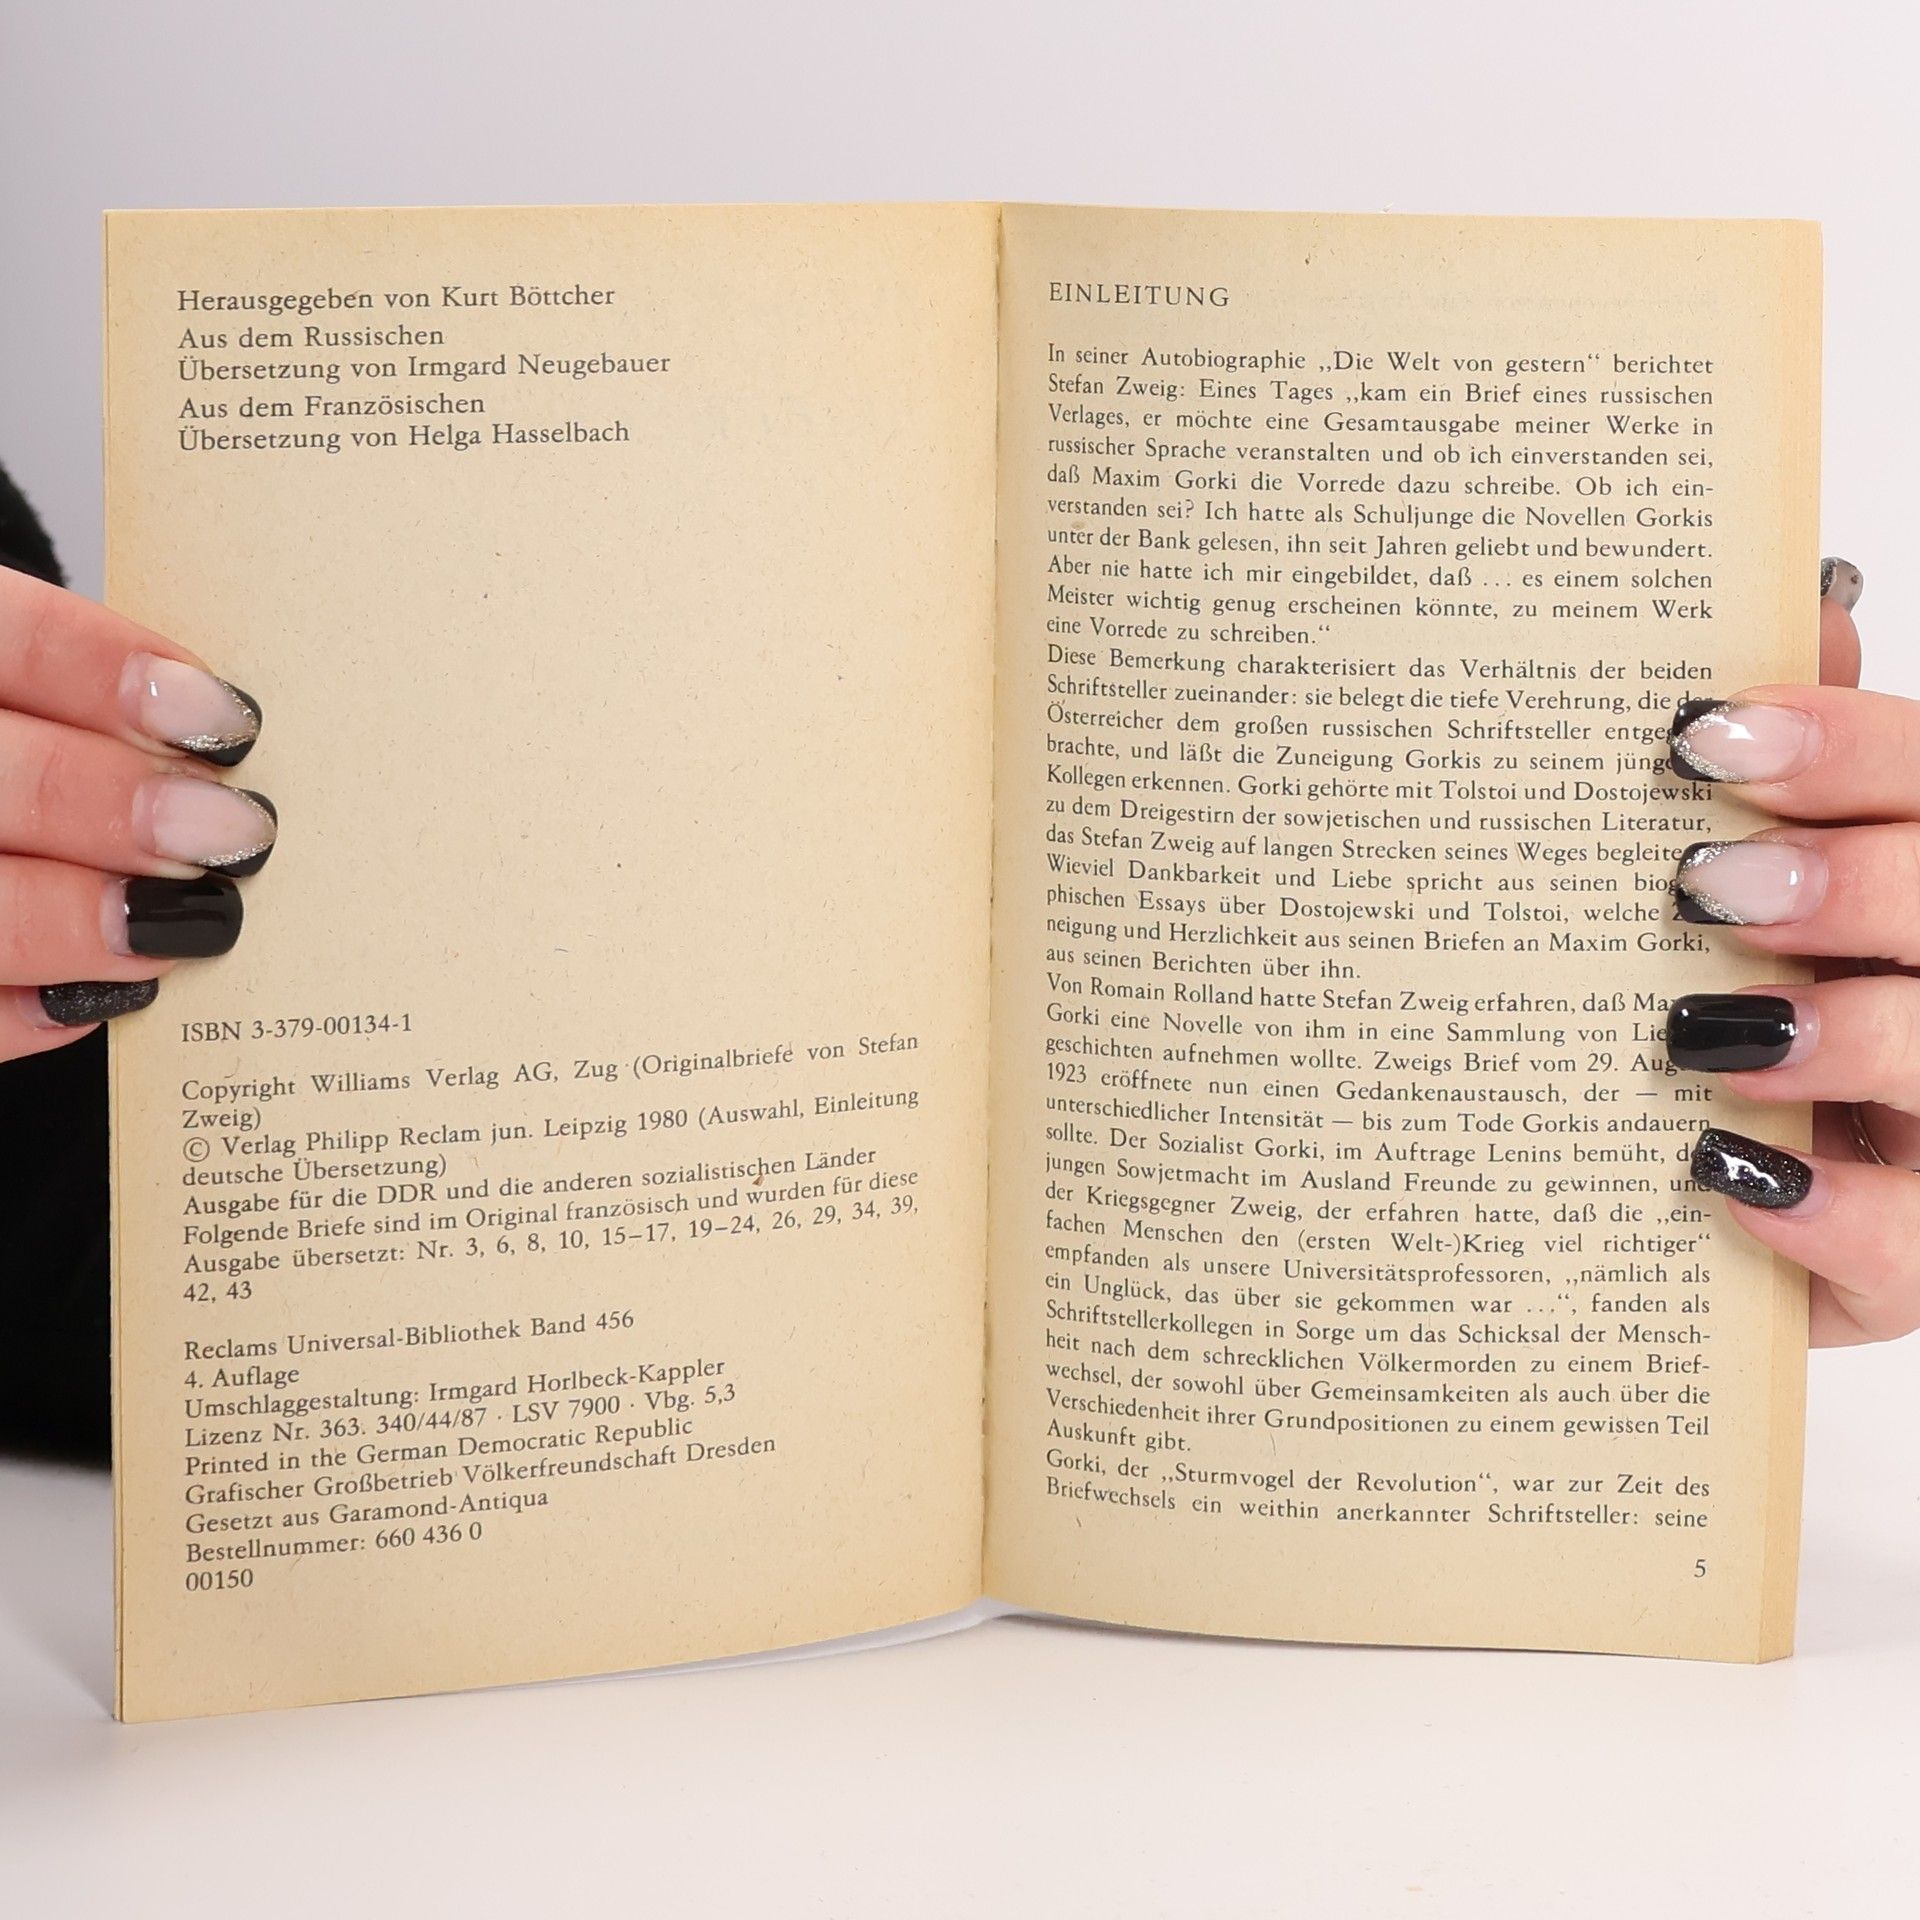 Herausgegeben von Kurt Böttcher
Aus dem Russischen
Übersetzung von Irmgard Neugebauer
Aus dem Französischen
Übersetzung von Helga Hasselbach
ISBN 3-379-00134-1
Copyright Williams Verlag AG, Zug (Originalbriefe von Stefan
Zweig)
© Verlag Philipp Reclam jun. Leipzig 1980 (Auswahl, Einleitung
deutsche Übersetzung)
Ausgabe für die DDR und die anderen sozialistischen Länder
Folgende Briefe sind im Original französisch und wurden für diese
Ausgabe übersetzt: Nr. 3, 6, 8, 10, 15–17, 19–24, 26, 29, 34, 39,
42, 43
Reclams Universal-Bibliothek Band 456
4. Auflage
Umschlaggestaltung: Irmgard Horlbeck-Kappler
Lizenz Nr. 363. 340/44/87 · LSV 7900 · Vbg. 5,3
Printed in the German Democratic Republic
Grafischer Großbetrieb Völkerfreundschaft Dresden
Gesetzt aus Garamond-Antiqua
Bestellnummer: 660 436 0
00150
EINLEITUNG
In seiner Autobiographie „Die Welt von gestern“ berichtet
Stefan Zweig: Eines Tages „kam ein Brief eines russischen
Verlages, er möchte eine Gesamtausgabe meiner Werke in
russischer Sprache veranstalten und ob ich einverstanden sei,
daß Maxim Gorki die Vorrede dazu schreibe. Ob ich ein-
verstanden sei? Ich hatte als Schuljunge die Novellen Gorkis
unter der Bank gelesen, ihn seit Jahren geliebt und bewundert.
Aber nie hatte ich mir eingebildet, daß ... es einem solchen
Meister wichtig genug erscheinen könnte, zu meinem Werk
eine Vorrede zu schreiben.“
Diese Bemerkung charakterisiert das Verhältnis der beiden
Schriftsteller zueinander: sie belegt die tiefe Verehrung, die der
Österreicher dem großen russischen Schriftsteller
brachte, und läßt die Zuneigung Gorkis zu seinem
Kollegen erkennen. Gorki gehörte mit Tolstoi und Dostojewski
zu dem Dreigestirn der sowjetischen und russischen Literatur,
das Stefan Zweig auf langen Strecken seines Weges
Wieviel Dankbarkeit und Liebe spricht aus seinen
phischen Essays über Dostojewski und Tolstoi, welche
neigung und Herzlichkeit aus seinen Briefen an Maxim Gorki,
aus seinen Berichten über ihn.
Von Romain Rolland hatte Stefan Zweig erfahren, daß
Gorki eine Novelle von ihm in eine Sammlung von
geschichten aufnehmen wollte. Zweigs Brief vom 29.
1923 eröffnete nun einen Gedankenaustausch, der — mit
unterschiedlicher Intensität — bis zum Tode Gorkis andauern
sollte. Der Sozialist Gorki, im Auftrage Lenins bemüht,
jungen Sowjetmacht im Ausland Freunde zu gewinnen, und
der Kriegsgegner Zweig, der erfahren hatte, daß die „ein-
fachen Menschen den (ersten Welt-)Krieg viel richtiger“
empfanden als unsere Universitätsprofessoren, „nämlich als
ein Unglück, das über sie gekommen war ...“, fanden als
Schriftstellerkollegen in Sorge um das Schicksal der Mensch-
heit nach dem schrecklichen Völkermorden zu einem Brief-
wechsel, der sowohl über Gemeinsamkeiten als auch über die
Verschiedenheit ihrer Grundpositionen zu einem gewissen Teil
Auskunft gibt.
Gorki, der „Sturmvogel der Revolution“, war zur Zeit des
Briefwechsels ein weithin anerkannter Schriftsteller: seine
5